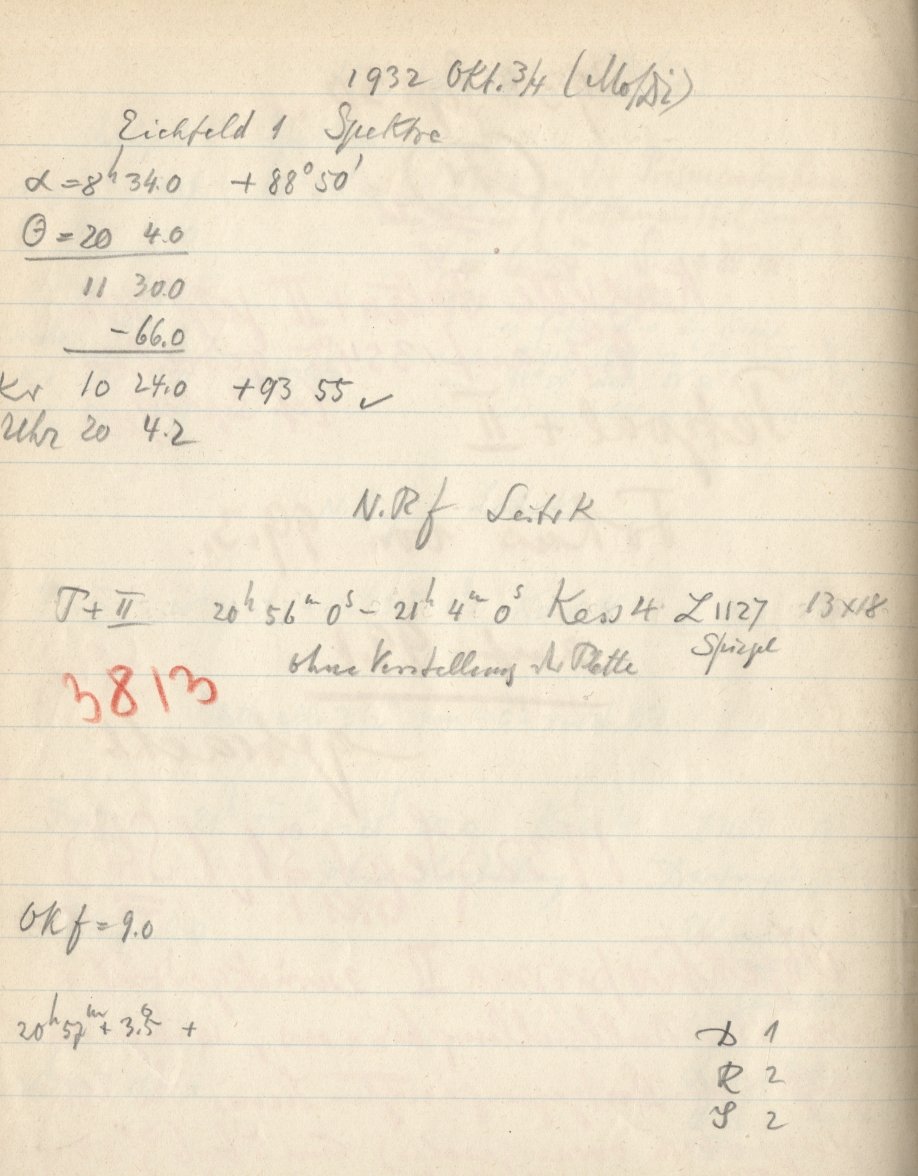 1932 Okt. 3/4 (Mo/Di)
Eichfeld 1 Spektra
α = 8h 34.0 + 88° 50'
Θ = 20 4.0
11 30.0
- 66.0
Kr 10 24.0 + 93 55 ✓
Uhr 20 4.2
N.R f Leitr K
T + II 20h 56m 0s - 21h 4m 0s Kass 4 Z 1127 13 x 18
Spiegel
ohne Verstellung der Platte
3813
Ok f = 9.0
20h 57m + 3.5 +
D 1
R 2
S 2